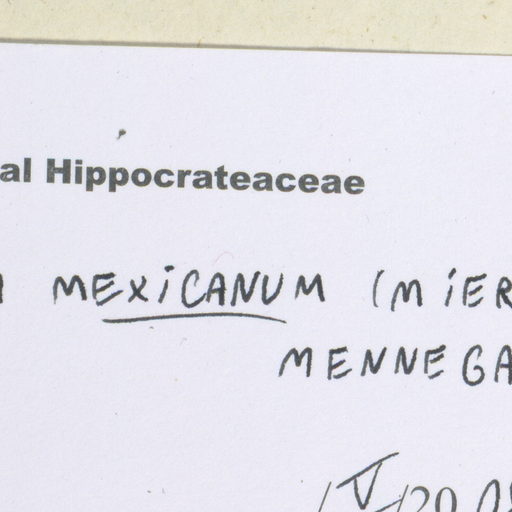 al Hippocrateaceae
MEXICANUM (MIER
MENNEGA
/V/20 08